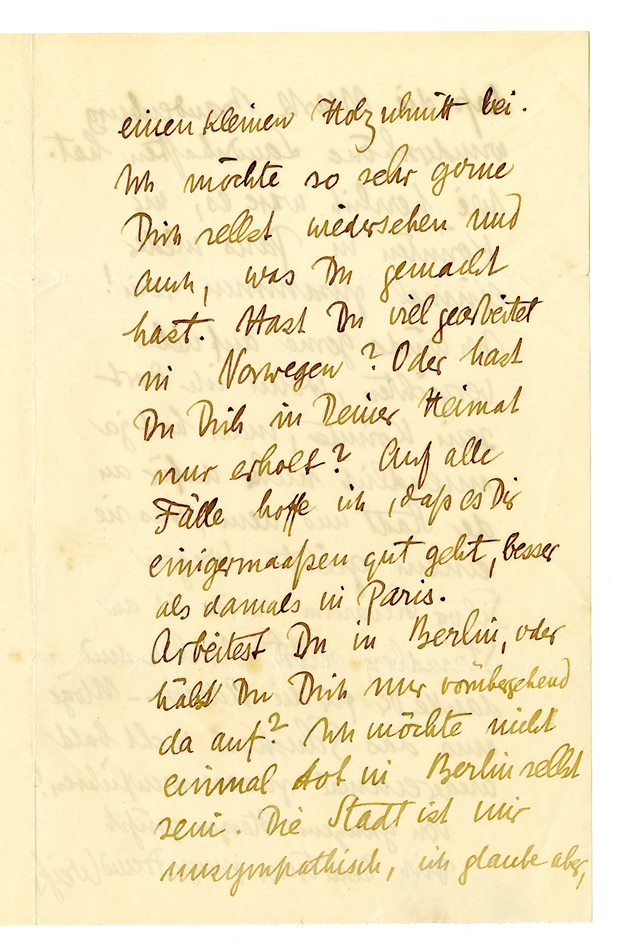 einen kleinen Holzschnitt bei.
Ich möchte so sehr gerne
Dich selbst wiedersehen und
auch, was Du gemacht
hast. Hast Du viel gearbeitet
in Norwegen? Oder hast
Du Dich in Deiner Heimat
nur erholt? Auf alle
Fälle hoffe ich, daß es Dir
einigermaaßen gut geht, besser
als damals in Paris.
Arbeitest Du in Berlin, oder
hälst Du Dich nur vorübergehend
da auf? Ich möchte nicht
einmal tot in Berlin selbst
sein. Die Stadt ist mir
unsympathisch, ich glaube aber,